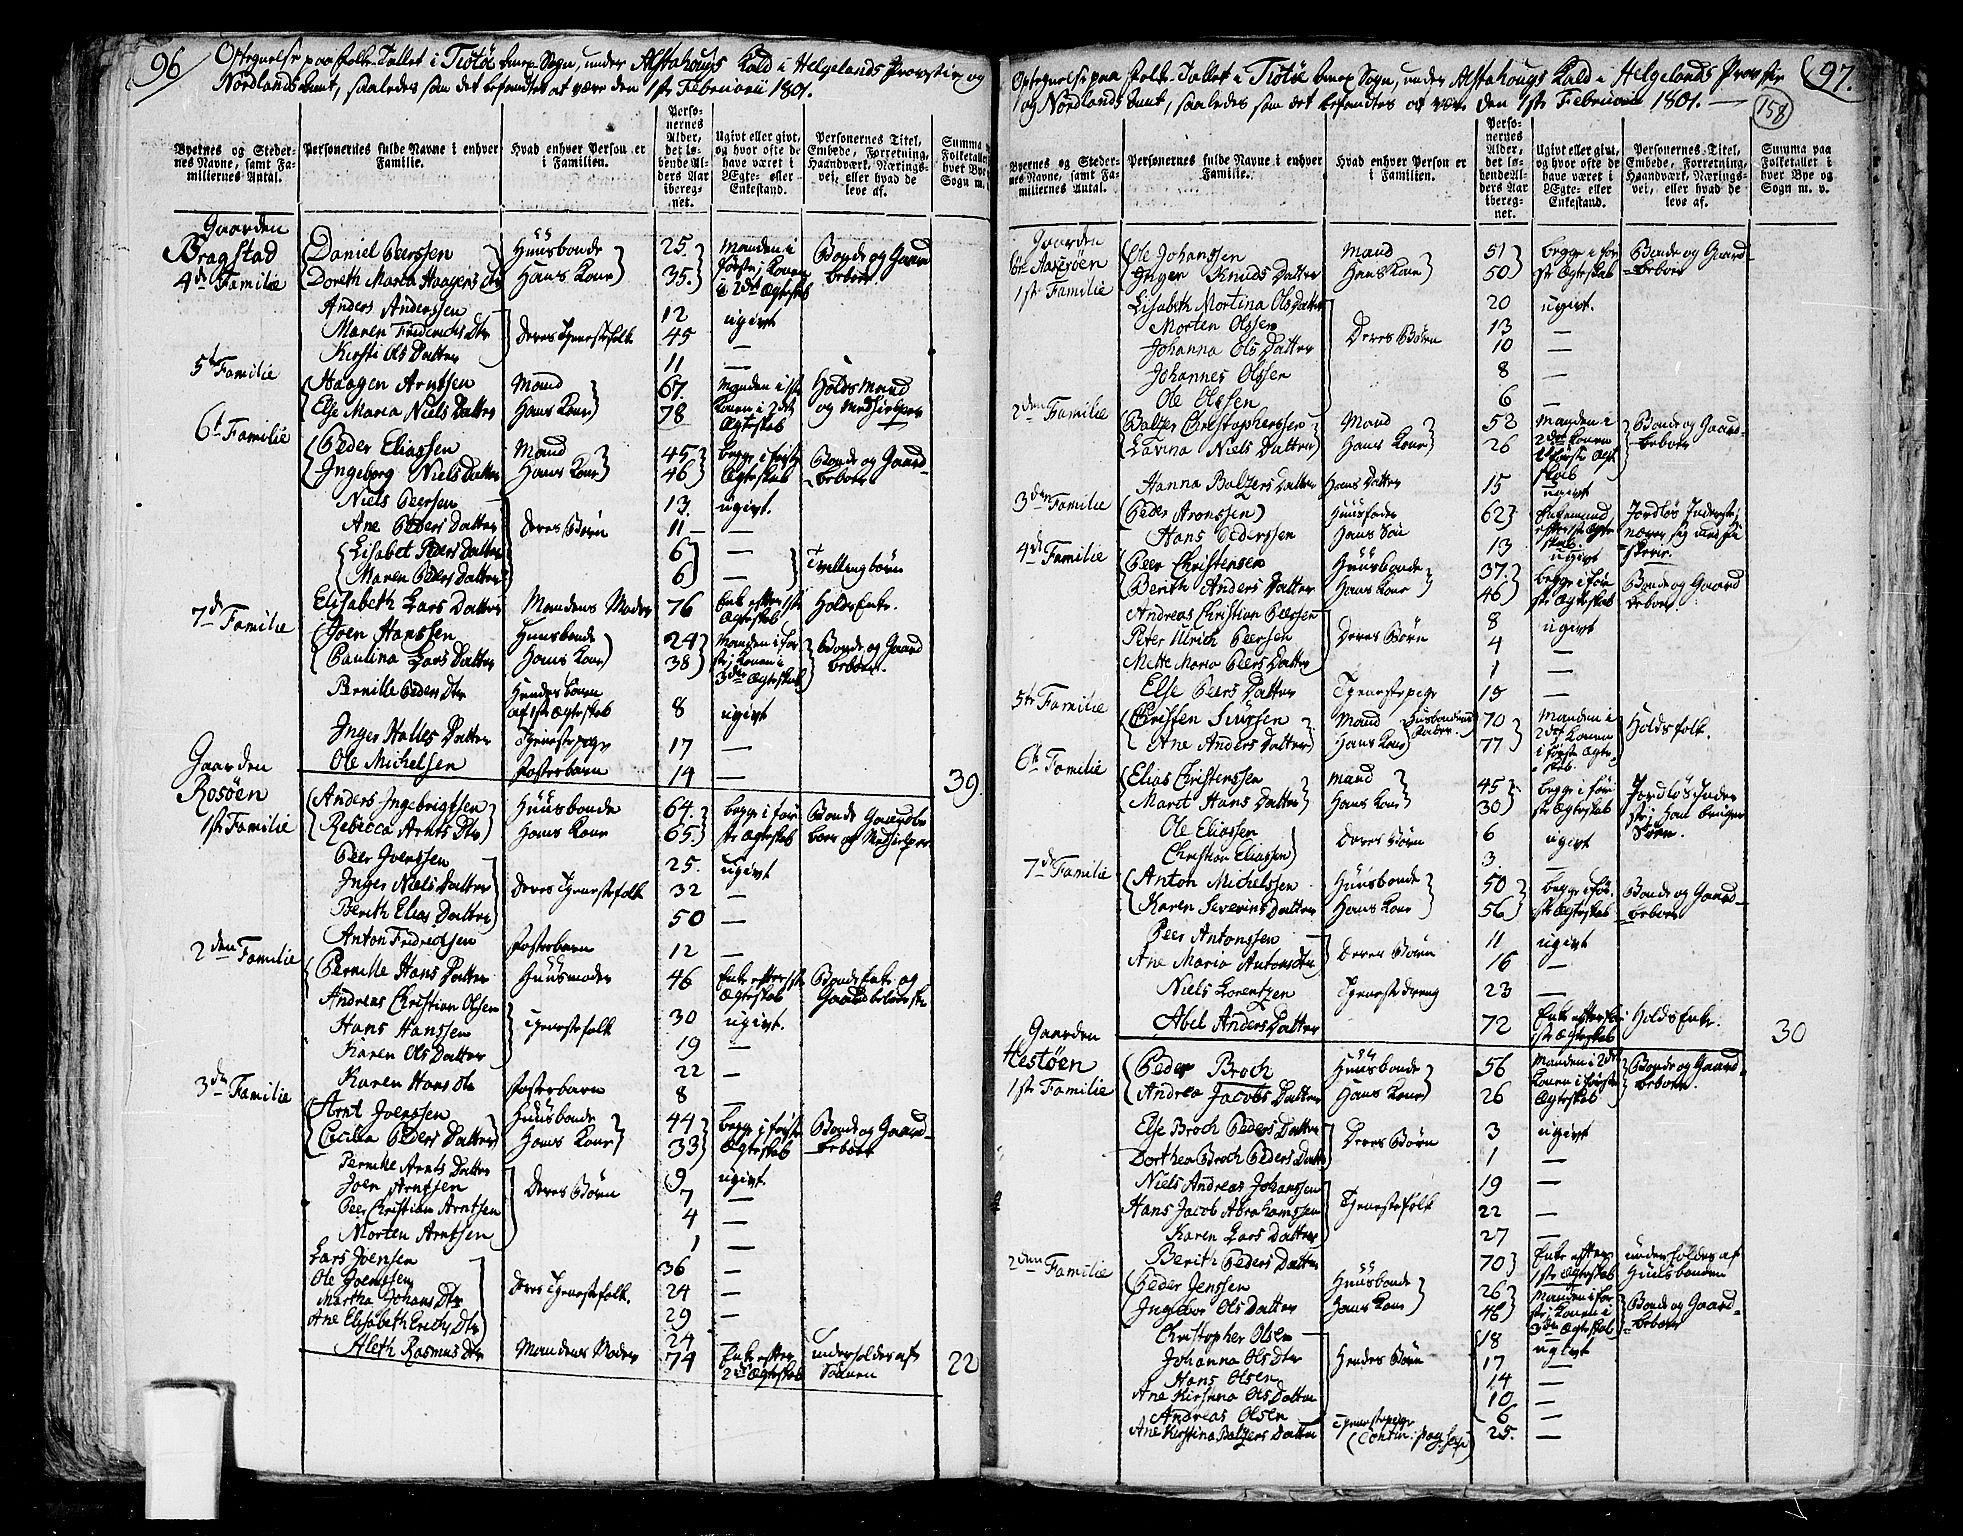 96
Optegnelse paa Folke-Tallet i Tiötö Anex Sogn, under Alstahougs Kald i Helgelands Provstie og
Nordlands Amt, saaledes som det befandtes at være den 1ste Februarii 1801.
Byernes og Steder-
nes Navne, samt Fa-
miliernes Antal.
Personernes fulde Navne i enhver
Familie.
Hvad enhver Person er
i Familien.
Perso-
nernes
Alder,
det lø-
bende Al-
ders Aar
ibereg-
net.
Ugivt eller givt,
og hvor ofte de
have været i
Ægte- eller
Enkestand.
Personernes Titel,
Embede, Forretning,
Haandværk, Nærings-
vei, eller hvad de
leve af.
Summa paa
Folketallet i
hver Bye og
Sogn m. v.
Gaarden
Bragstad
4de Familie
Daniel Peerssen Huusbonde 25. Manden i første, Konen i 2det Ægteskab Bonde og Gaardbeboer.
Doreth Maria Haagens Dtr Hans Kone 35.
Anders Anderssen Deres Tjenestefolk 12 ugivt
Maren Friderichs Dtr 45 —
Kirsti Ols Datter 11 —
5te Familie
Haagen Arntsen Mand 67. Manden i 1ste Konen i 2det Ægteskab Holds Mand og Medhielper
Else Maria Niels Datter Hans Kone 78
6te Familie
Peder Eliassen Mand 45 begge i første Ægteskab Bonde og Gaardbeboer
Ingeborg Niels Datter Hans Kone 46
Niels Peersen Deres Børn 13. ugivt.
Ane Peders Datter 11 —
Lisabet Peders Datter 6 — Tvellingbørn
Maren Peders Datter 6 —
Elisabeth Lars Datter Mandens Moder 76 Enke efter 1ste Ægteskab Holds Enke.
7de Familie
Joen Hanssen Huusbonde 24 Manden i første, Konen i 3die Ægteskab Bonde og Gaardbeboer.
Paulina Lars Datter Hans Kone 38
Pernille Peders Dtr Hendes Barn af 1ste Ægteskab 8 ugivt
Inger Halles Datter Tjenestepige 17 —
Ole Michelsen Fosterbarn 14 — 39.
Gaarden
Rosöen
1ste Familie
Anders Ingebrigtsen Huusbonde 64. begge i første Ægteskab Bonde Gaardbeboer og Medhielper
Rebecca Arnts Dtr Hans Kone 65.
Peer Joenssen Deres Tjenestefolk 25. ugivt
Inger Niels Datter 32 —
Berith Elias Datter 50 —
Anton Fredrichsen Fosterbarn 12 —
2den Familie
Pernille Hans Datter Huusmoder 46 Enke efter 1ste Ægteskab Bonde Enke og Gaardbeboerske
Andreas Christian Olsen Tjenestefolk 30 ugivt.
Hans Hanssen 19 —
Karen Ols Datter 22 —
Karen Hans Dtr Fosterbarn 8 —
3die Familie
Arnt Joenssen Huusbonde 44 begge i første Ægteskab Bonde og Gaardbeboer
Cecilia Peders Datter Hans Kone 33
Pernille Arnts Datter Deres Børn 9 ugivt
Joen Arntsen 7 —
Peer Christian Arntsen 4 —
Morten Arntsen 1 —
Lars Joensen Deres Tjenestefolk. 36 —
Ole Joenssen 24 —
Martha Johans Dtr 29 —
Ane Elisabeth Erichs Dtr 24
Aleth Rasmus Dtr Mandens Moder 74 Enke efter 2det Ægteskab underholdes af Sønnen 22
97.
158
Optegnelse paa Folke-Tallet i Tiötö Anex Sogn, under Alstahougs Kald i Helgelands Provstie
og Nordlands Amt, saaledes som det befandtes at være den 1ste Februarii 1801. —
Byernes og Steder-
nes Navne, samt Fa-
miliernes Antal.
Personernes fulde Navne i enhver
Familie.
Hvad enhver Person er
i Familien.
Perso-
nernes
Alder,
det lø-
bende Al-
ders Aar
ibereg-
net.
Ugivt eller givt,
og hvor ofte de
have været i
Ægte- eller
Enkestand.
Personernes Titel,
Embede, Forretning,
Haandværk, Nærings-
vei, eller hvad de
leve af.
Summa paa
Folketallet i
hver Bye og
Sogn m. v.
Gaarden
1ste Familie
Ole Johanssen Mand 51 begge i første Ægteskab Bonde og Gaardbeboer
Inger Knuds Datter Hans Kone 50
Lisabeth Mortina Ols datter Deres Børn 20 ugivt.
Morten Olssen 13 —
Johanna Ols Datter 10 —
Johannes Olssen 8 —
Ole Olssen 6 —
2den Familie
Balzer Christopherssen Mand 52 Manden i 2det Konen i første Ægteskab Bonde og Gaardbeboer
Lavina Niels Datter Hans Kone 26
Hanna Balzers Datter Hans Datter 15 ugivt
3den Familie
Peder Aronssen Huusfader 62 Enkemand efter 1ste Ægteskab Jordløs Inderst, nærer sig ved Fiskerie.
Hans Pederssen Hans Søn 13 ugivt
4de Familie
Peer Christensen Huusbonde 37. begge i første Ægteskab Bonde og Gaardbeboer
Berith Anders Datter Hans Kone 46
Andreas Christian Peersen Deres Børn 8 ugivt
Peter Ulrich Peersen 4 —
Mette Maria Peers Datter 1 —
Else Peers Datter Tjenestepige 15 —
5te Familie
Christen Siursen Mand Huusbondens Fader. 70 Manden i 2det Konen i første Ægteskab. Holdsfolk.
Ane Anders Datter Hans Kone 77
6te Familie
Elias Christenssen Mand 45 begge i første Ægteskab Jordløs
Maret Hans Datter Hans Kone 30
Ole Eliassen Deres Børn 6 ugivt
Christian Eliassen 3. —
7de Familie
Anton Michelssen Huusbonde 50 begge i første Ægteskab Bonde og Gaardbeboer
Karen Severins Datter Hans Kone 56
Peer Antonssen Deres Børn 11 ugivt
Ane Maria Antons Dtr 16 —
Niels Lorentzen Tjenestedreng 23 —
Abel Anders Datter 72 Enke efter første Ægteskab Holds Enke. 30
Gaarden
Hestöen
1ste Familie
Peder Broch Huusbonde 56 Manden i 2det Konen i første Ægteskab Bonde og Gaardbeboer.
Andrea Jacobs Datter Hans Kone 26
Else Broch Peders Datter Deres Børn 3 ugivt
Dorthea Broch Peders Datter 1 —
Niels Andreas Johanssen Tjenestefolk 19 —
Hans Jacob Abrahamssen 22 —
Karen Lars Datter 27 —
Berith Peders Datter 70 Enke efter 1ste Ægteskab underholdes af Huusbonden
2den Familie
Peder Jenssen Huusbonde 26 Manden i første, Konen i 3die Ægteskab Bonde og Gaardbeboer
Ingebor Ols Datter Hans Kone 46
Christopher Olsen Hendes Børn 18 ugivt
Johanna Ols Dtr 17 —
Hans Olsen 14 —
Ane Kirstina Ols Datter 10 —
Andreas Olsen 6 —
Ane Kirstina Balzers Datter Tjenestepige 25. —
(Contin: pag: seq:)